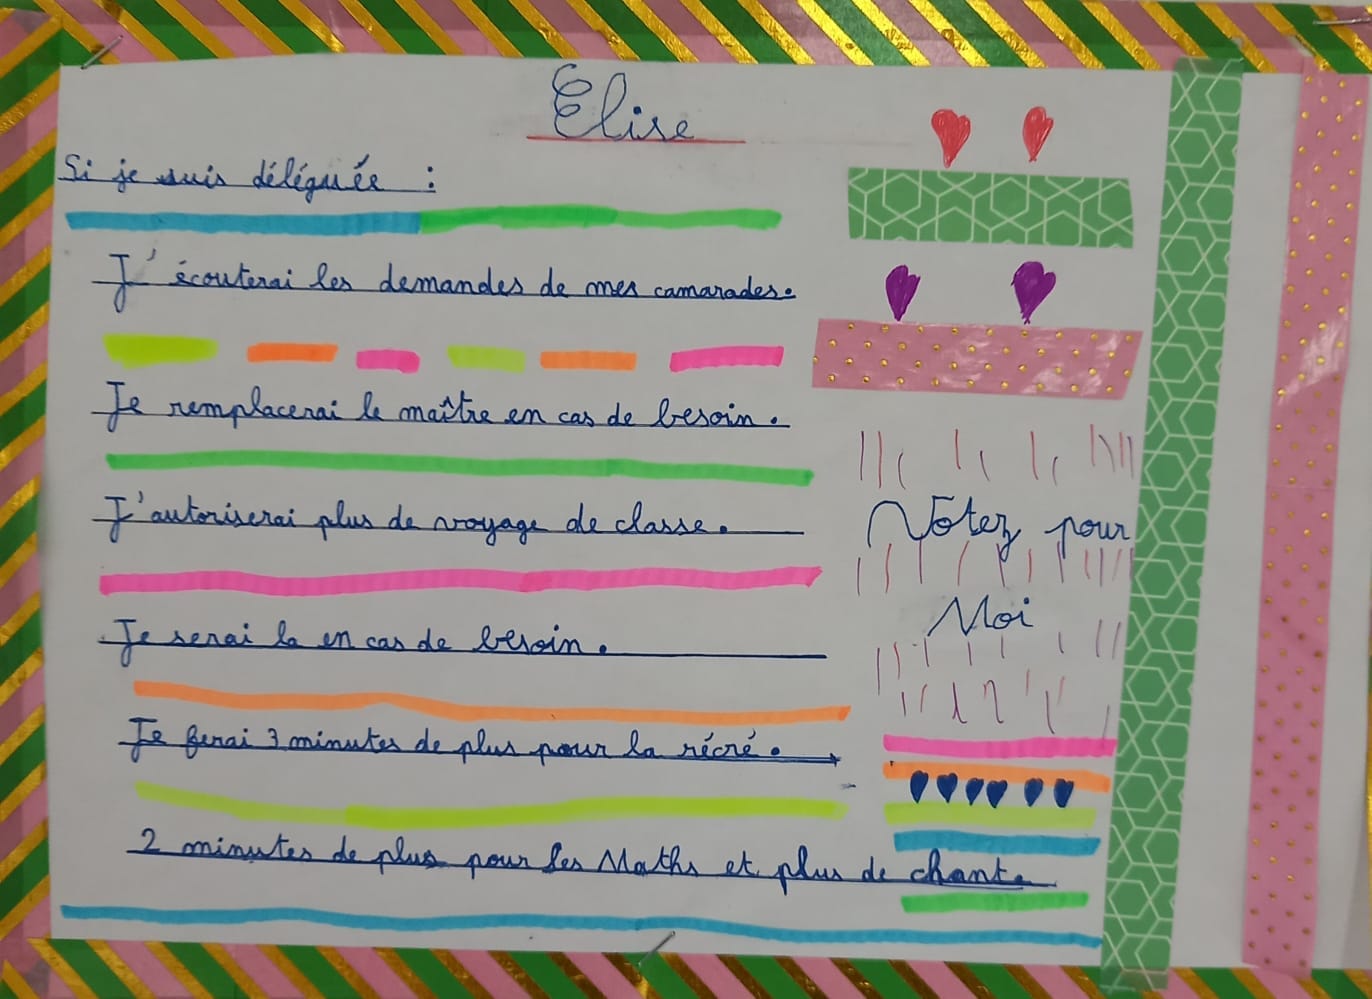 Elise
Si je suis déléguée :
J'écouterai les demandes de mes camarades.
Je remplacerai le maître en cas de besoin.
J'autoriserai plus de voyage de classe.
Je serai la en cas de besoin.
Je ferai 3 minutes de plus pour la récré.
2 minutes de plus pour les Maths et plus de chant.
Votez pour
Moi